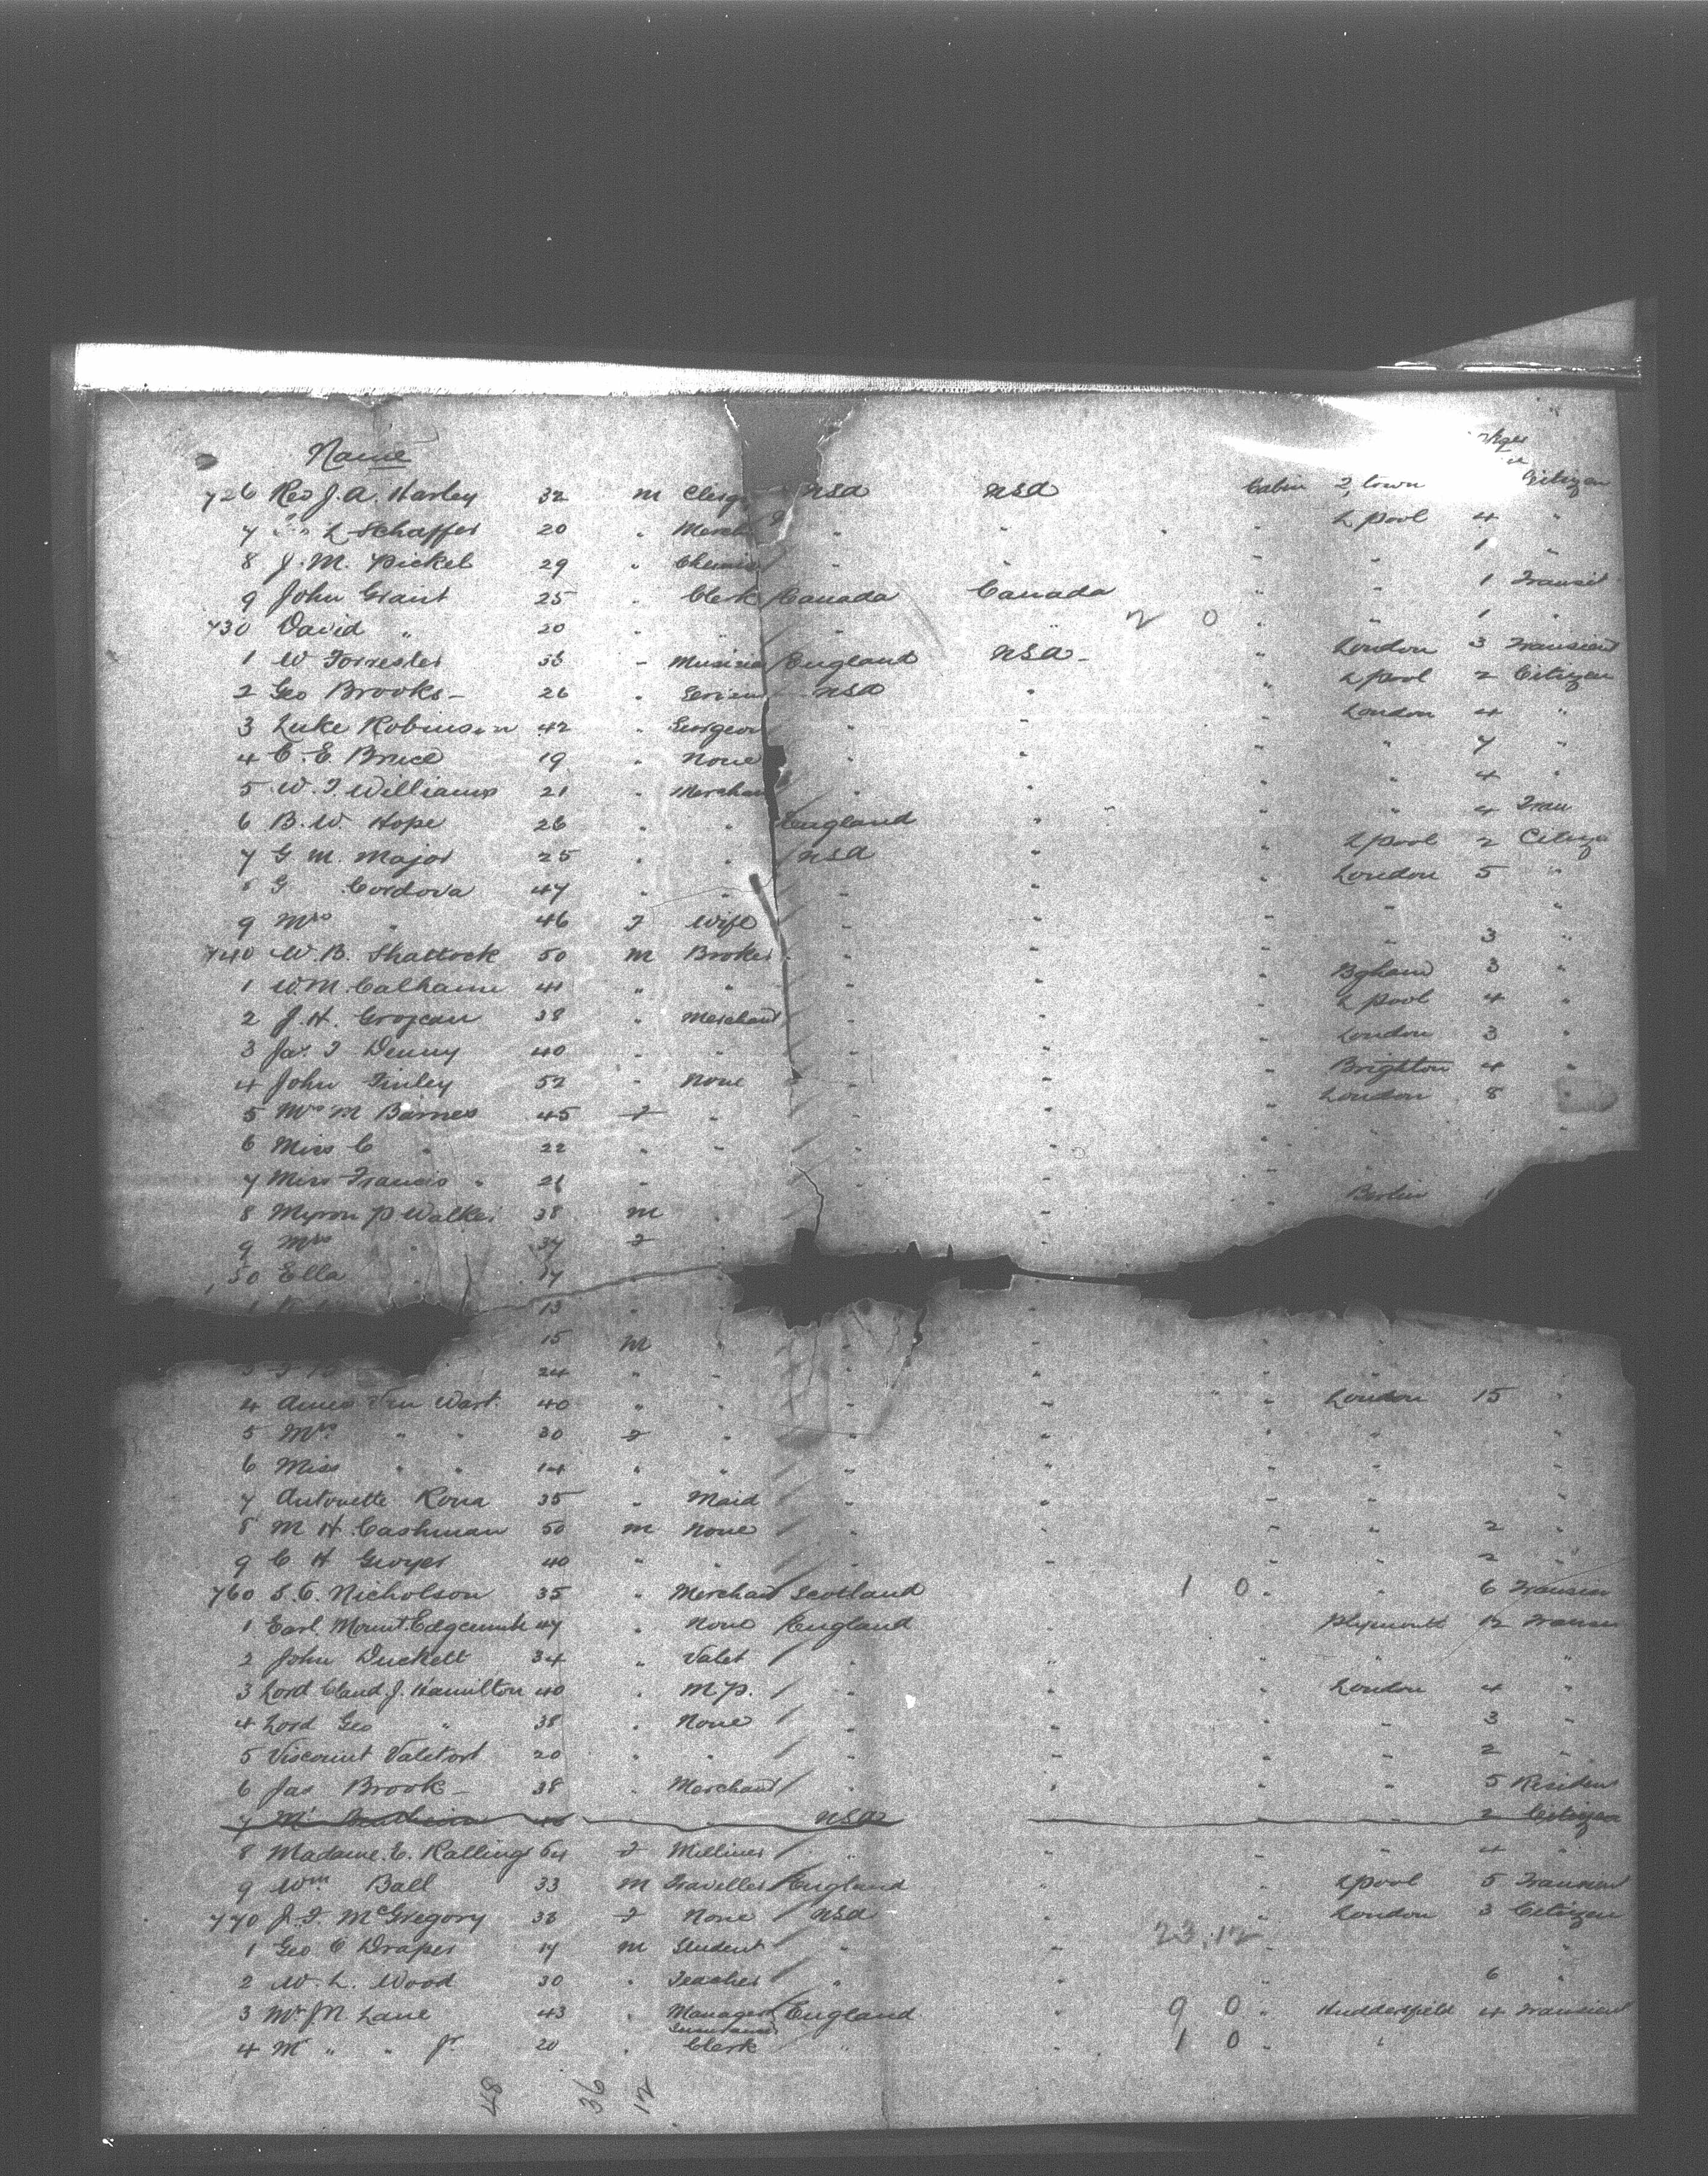 Name
726 Rev J. A. Harley 32 m Clergy USA USA Cabin 2, town Citizen
7 L Schaffer 20 " Merch " " " L pool 4 "
8 J. M. Pickel 29 " Chemis " " " " 1 "
9 John Grant 25 " Clerk Canada Canada " " 1 Transit
730 David " 20 " " " " 2 0 " " 1 "
1 W Forrester " Musicia England USA - " London 3 Transient
2 Geo Brooks - 26 " USA " " L pool 2 Citizen
3 Luke Robinson 42 " Surgeon " " " London 4 "
4 C. E. Bruce 19 " None " " " " 7 "
5 W. F. Williams 21 " Merchan " " " " 4 "
6 B. W. Hope 26 " " England " " " 4 Tran
7 G M. Major 25 " " USA " " L pool 2 Citize
8 G Cordova 47 " " " " " London 5 "
9 Mrs " 46 F Wife " " " " "
740 W. B. Shattock 50 m Broker " " " " 3 "
1 W. M. Calhame 41 " " " " " Bgham 3 "
2 J. H. Grozean 38 " Merchant " " " L pool 4 "
3 Jas. F Denny 40 " " " " " London 3 "
4 John Finley 52 " None " " " Brighton 4 "
5 Mrs M Barnes 45 F " " " " London 8
6 Miss C " 22 " " " " " " "
7 Miss Francis " 21 " " " " "
8 Myron P Walker 38 m " " " " Berlin 1
9 Mrs " 37 F "
50 Ella " 17 "
1 13 " "
15 m " " " " "
3 24 " " " " " "
4 Van Wart. 40 " " " " " London 15 "
5 Mrs " " 30 F " " " " " "
6 Miss " " 14 " " " " " " "
7 Antonette Rona 35 " Maid " " " " "
8 M H. Cashman 50 m None " " " " 2 "
9 C. H Gwyer 40 " " " " " " 2 "
760 S. C. Nicholson 35 " Merchant Scotland " 1 0 " " 6 Transien
1 Earl. Mount. Edgcumbe 47 " None England " " Plymouth 12 Transien
2 John Duckett 34 " Valet " " " " " "
3 Lord Claud. J. Hamilton 40 " M.P. " " " London 4 "
4 Lord Geo " 38 " None " " " " 3 "
5 Viscount Valetort 20 " " " " " " 2 "
6 Jas Brook - 38 " Merchant " " " " 5 Residen
7 Mr USA 2 Citizen
8 Madame. E. Rallings 64 F Milliner " " " " 4 "
9 Wm Ball 33 m Traveller England " " L pool 5 Transient
770 J. F. McGregory 36 F None USA " " London 3 Citizen
1 Geo C Draper 17 m Student " " 23.12 " "
2 W. L. Wood 30 " Teacher " " " 6 "
3 Mr J N Lane 43 " Manager England " 9 0 " Huddersfield 4 Transient
4 Mr " " Jr 20 " Clerk " " 1 0 " "
48 36 12